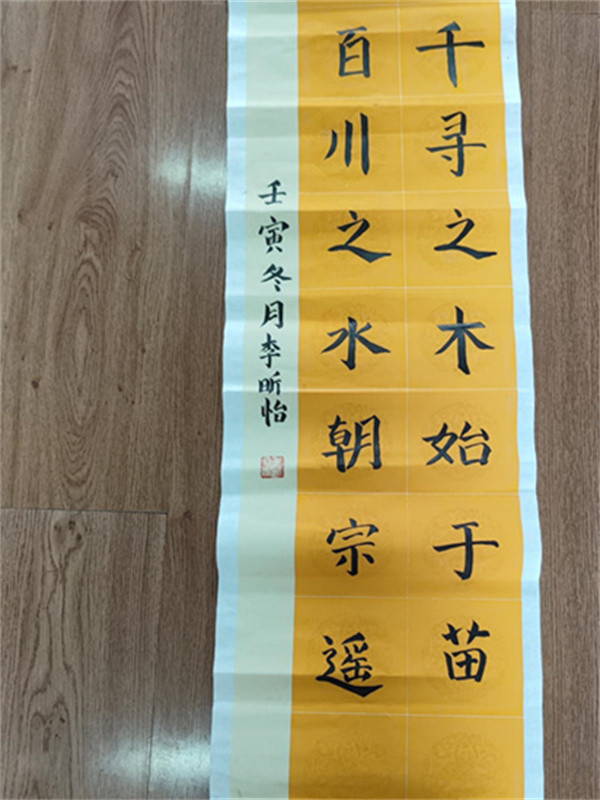 千寻之木始于苗
百川之水朝宗遥
壬寅冬月李昕怡